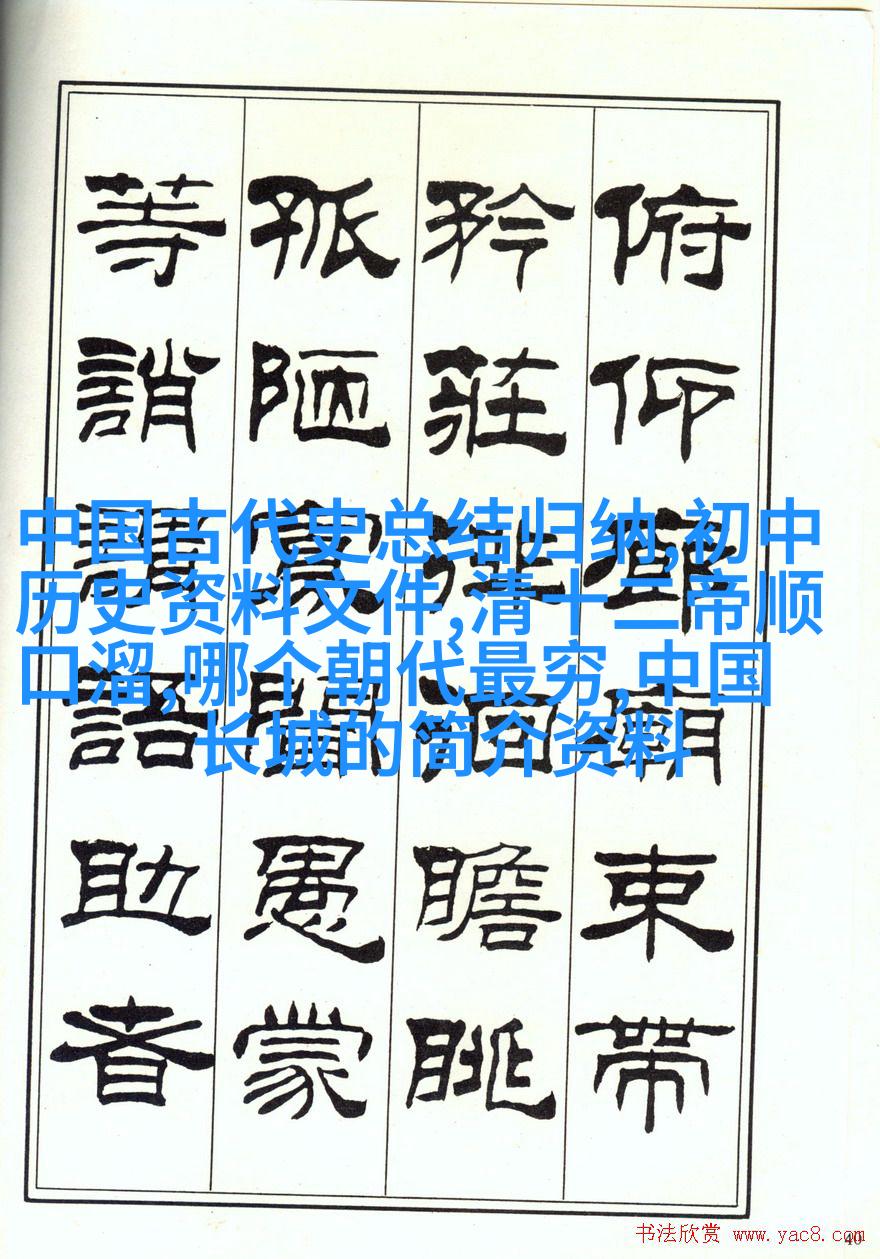 俯仰廊廟束帶
矜莊徘徊瞻眺
孤陋寡聞愚蒙
等誚謂語助者
中国古代史总结归纳,初中
历史资料文件,清十二帝顺
口溜,哪个朝代最穷,中国
长城的简介资料
书法欣赏 www.yac8.com
40